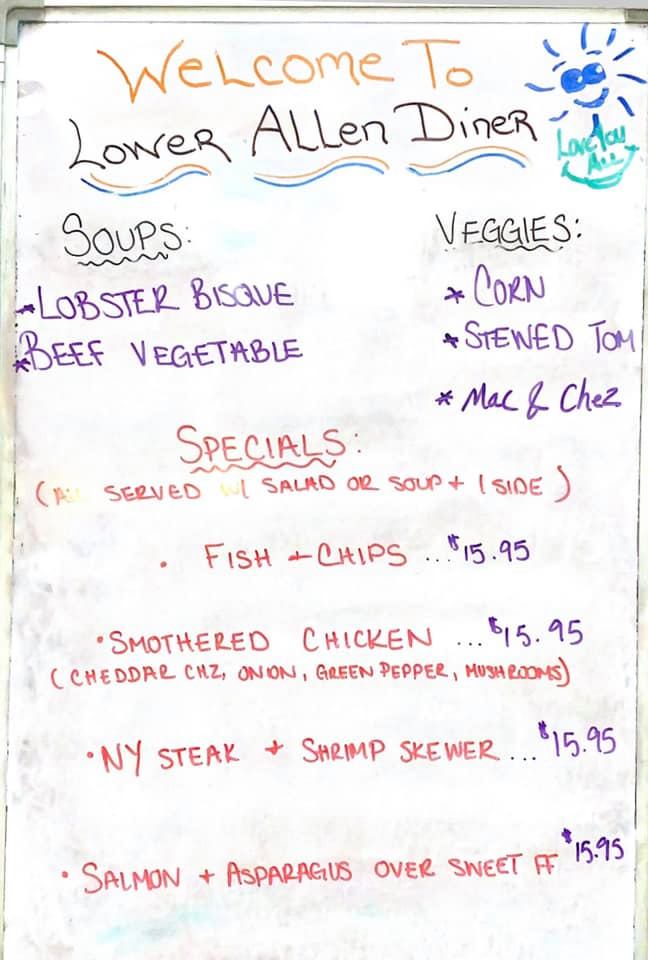 WELCOME TO
LOWER ALLEN DINER
Love You
ALL
SOUPS:
* LOBSTER BISQUE
* BEEF VEGETABLE
VEGGIES:
* CORN
* STEWED TOM
* Mac & Chez
SPECIALS:
(ALL SERVED W/ SALAD OR SOUP + 1 SIDE)
• FISH + CHIPS ... $15.95
• SMOTHERED CHICKEN ... $15.95
(CHEDDAR CHZ, ONION, GREEN PEPPER, MUSHROOMS)
• NY STEAK + SHRIMP SKEWER ... $15.95
• SALMON + ASPARAGUS OVER SWEET FF $15.95